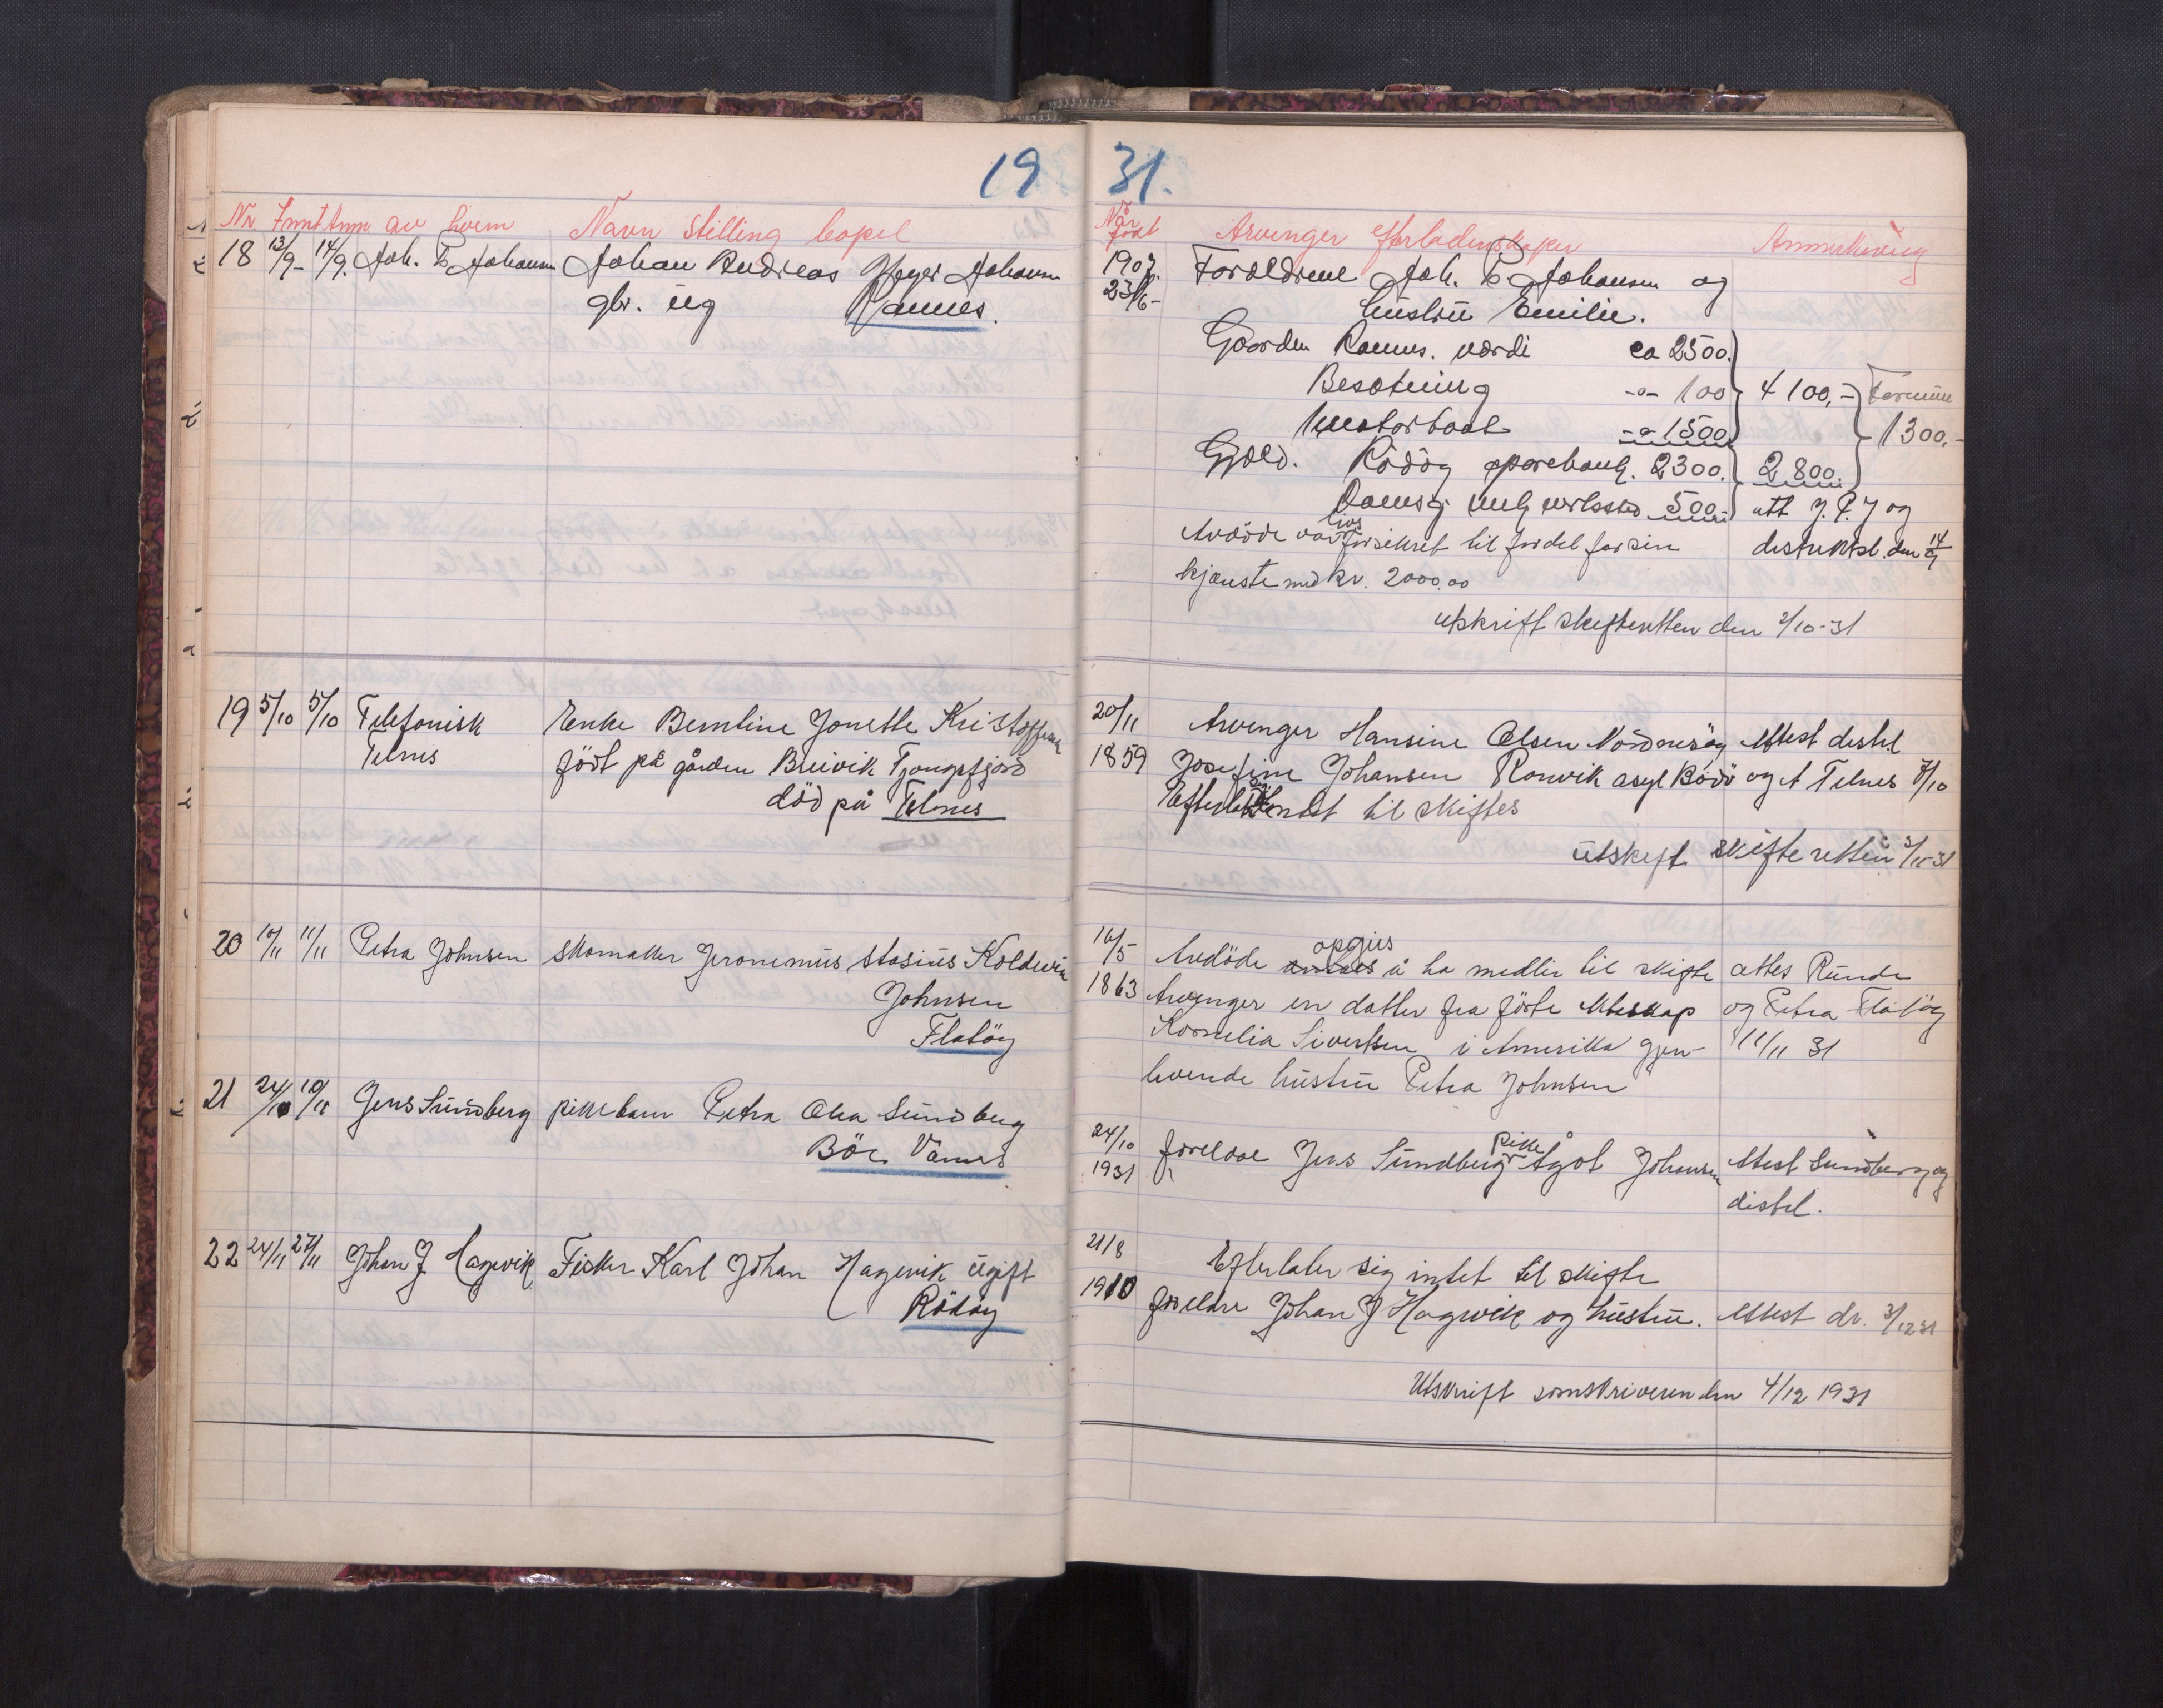 19 31.
Nr Anm av hvem Navn stilling bopel
18 13/9- 14/9. Joh. Johansen Johan Andreas Johansen
gbr. ug Rannes.
19 5/10 5/10 Telefonisk Enke Berntine Jonette Kristoffersen
Telnes født på gården Breivik Tjongsfjord
död på Telnes
20 10/11 11/11 Petra Johnsen skomaker Jeronimus stasius Koldevin
Johnsen
Flatöy
21 24/10 10/11 Jens Sundberg pikebarn Petra Olea Sundberg
Böe Værnes
22 24/11 27/11 Johan J Hagevik Fisker Karl Johan Hagevik ugift
Rödöy
Når født Arvinger efterladenskaper Anmerkning
1907. Forældrene Joh. Johansen og
23/6- hustru Emilie.
Gaarden Rannes. værdi ca 2500.
Besætning -"- 100 4100,- Formue
Motorbaat -"- 1500 1300,-
Gjæld. Rödöy sparebank. 2300. 2800.
500.- att J. P. J og
Avdöde var livsforsikret til fordel for sin distriktsl. den 14/9
kjæreste med kr. 2000.00
utskrift skifteretten den 2/10-31
20/11 Arvinger Hansine Olsen Nordnesöy Attest distl
1859 Josefine Johansen Rønvik asyl Bodö og A Telnes 7/10
Efterlater sig intet til skiftes
utskrift skifteretten
16/5 Avdöde opgives å ha midler til skifte attes Runde
1863 Arvinger en datter fra förste ekteskap og Petra Flatöy
Kornelia Sivertsen i Amerika gjen- 11/11 31
levende hustru Petra Johnsen
24/10 foreldre Jens Sundberg pike Ågot Johansen Attest Sundberg og
1931 distl.
21/8 Efterlater sig intet til skifte
1910 foreldre Johan J Hagevik og hustru. Attest dr. 3/12 31
Utskrift sornskriveren den 4/12 1931